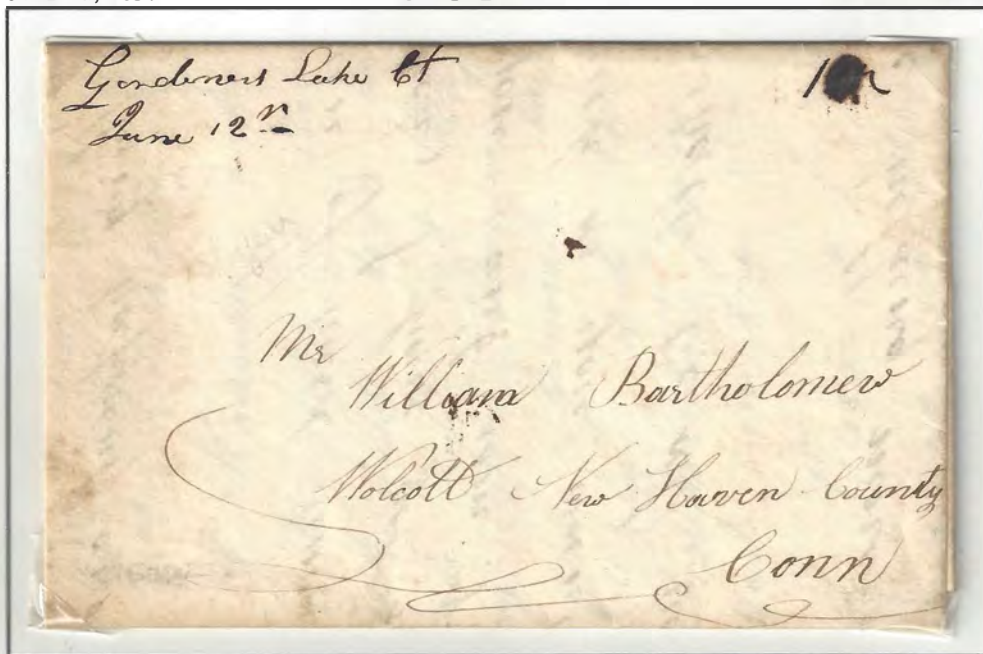 Gardeners Lake Ct
June 12th
Mr
William Bartholomew
Wolcott New Haven County
Conn